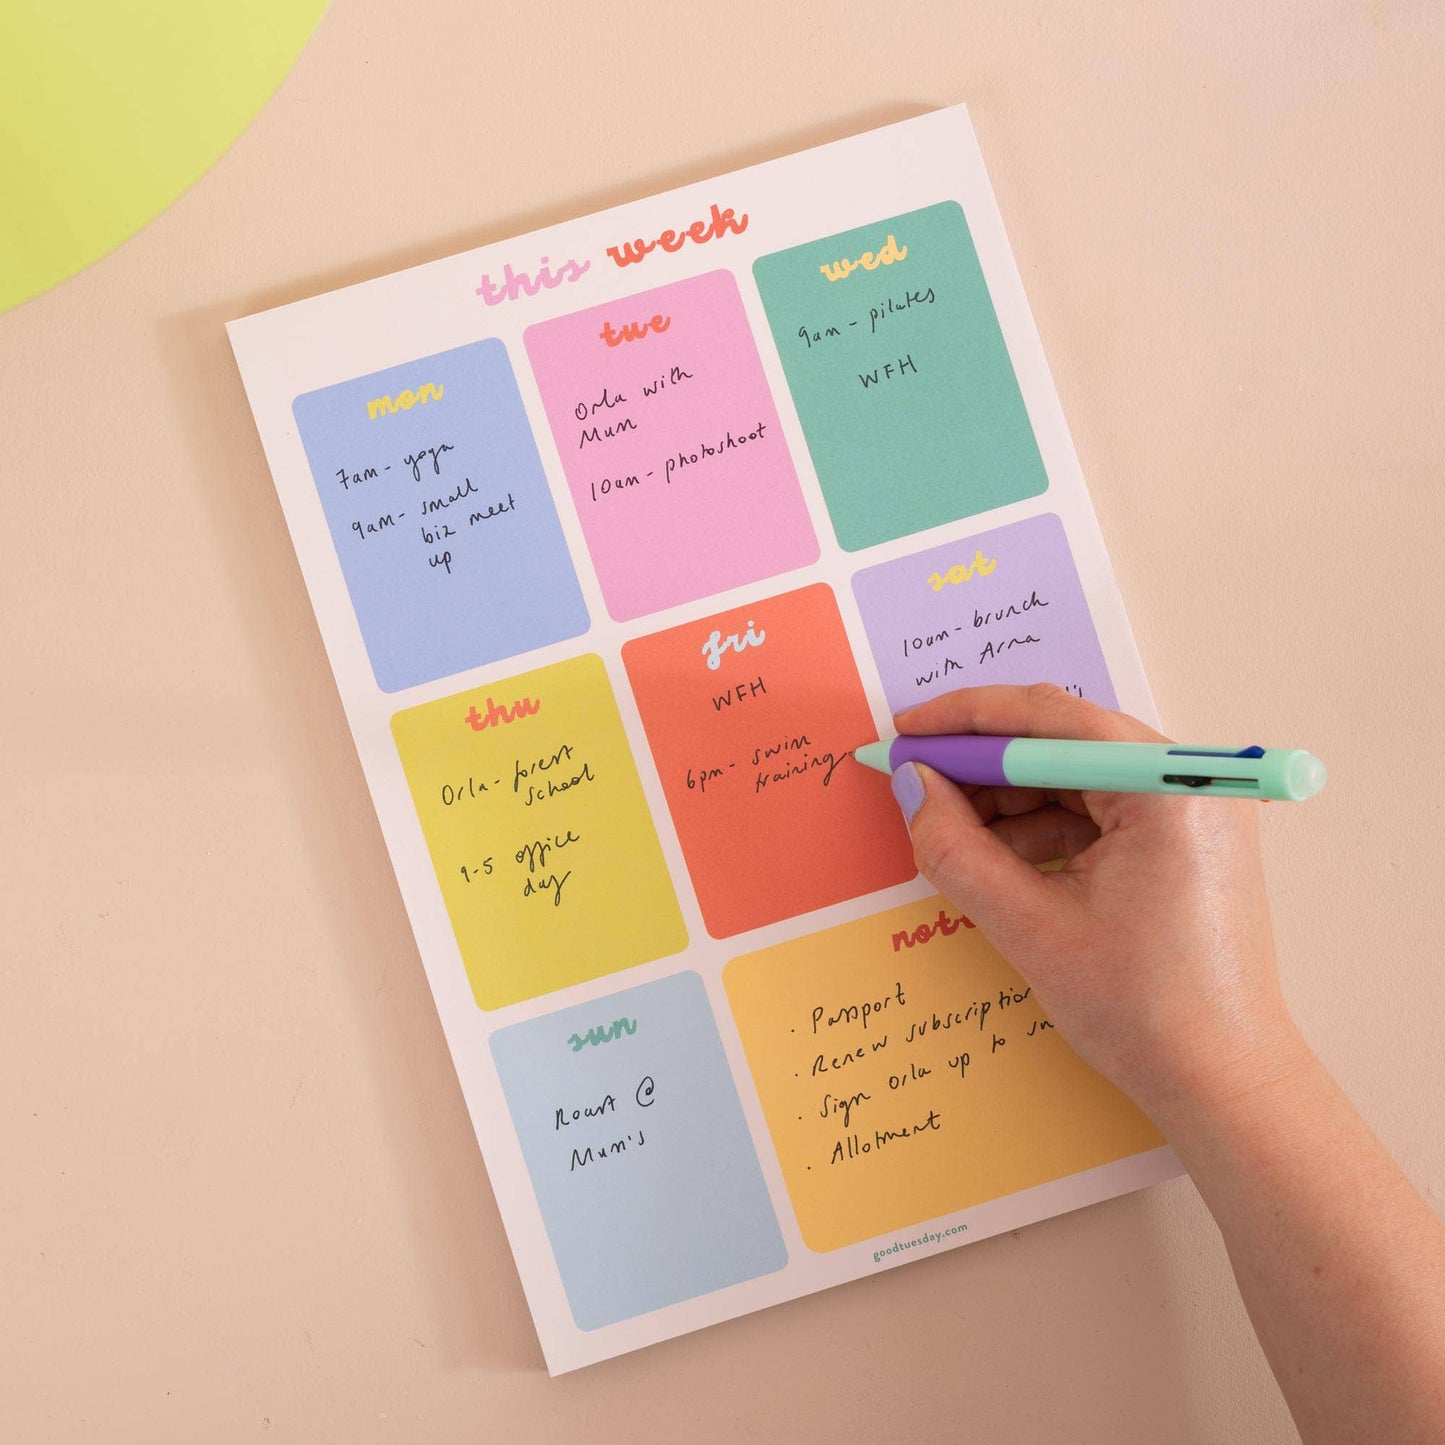 this week
mon
7am - yoga
9am - small
biz meet
up
tue
Orla with
Mum
10am - photoshoot
wed
9am - pilates
WFH
thu
Orla - forest
school
9-5 office
day
fri
WFH
6pm - swim
training
sat
10am - brunch
with Anna
sun
Roast @
Mum's
· Passport
· Renew subscription
· Sign Orla up to
· Allotment
goodtuesday.com